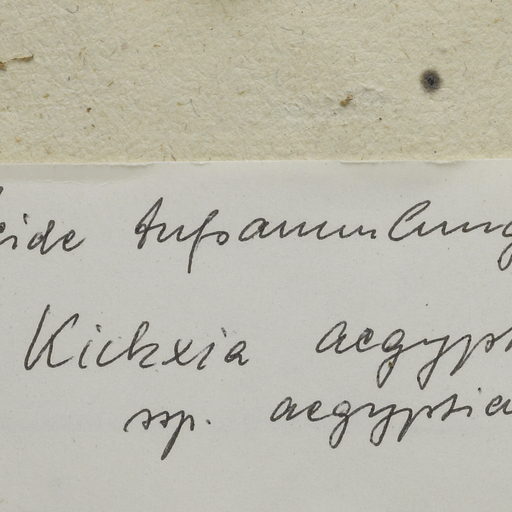 eide Aufsammlung
Kickxia aegypt
ssp. aegyptia